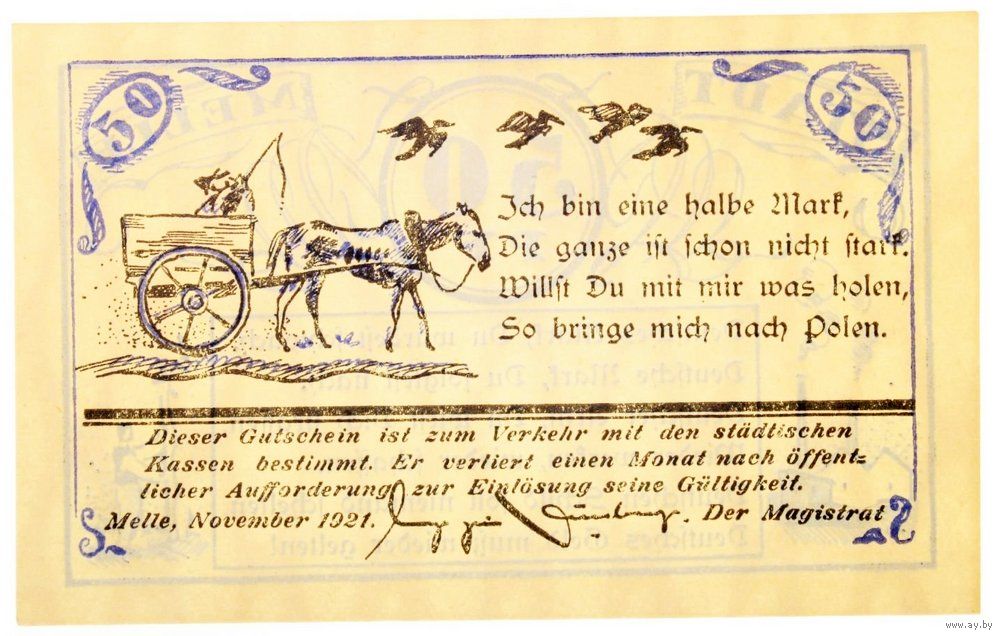 50
50
Ich bin eine halbe Mark,
Die ganze ist schon nicht stark.
Willst Du mit mir was holen,
So bringe mich nach Polen.
Dieser Gutschein ist zum Verkehr mit den städtischen
Kassen bestimmt. Er verliert einen Monat nach öffent=
licher Aufforderung zur Einlösung seine Gültigkeit.
Melle, November 1921. Der Magistrat
www.ay.by